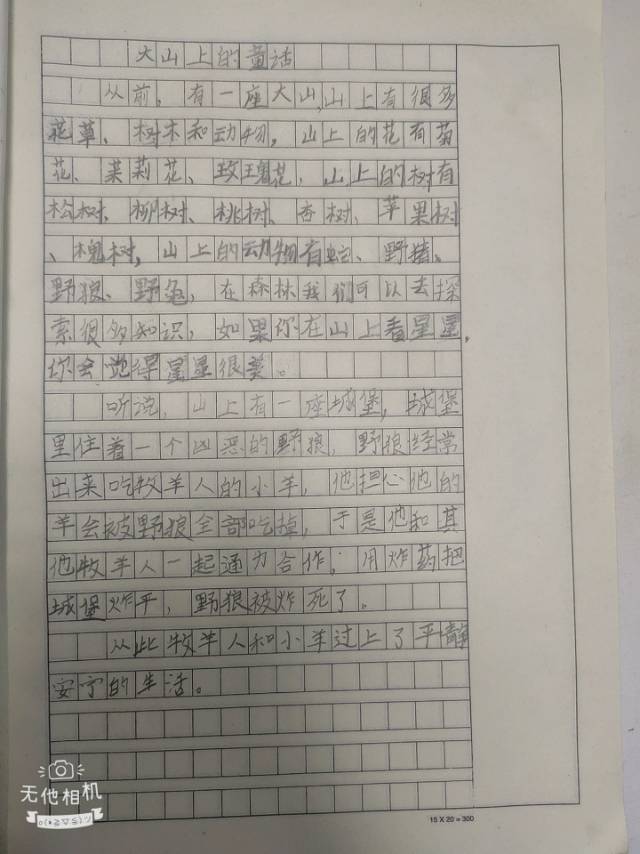 大山上的童话
从前，有一座大山，山上有很多
花草、树木和动物，山上的花有菊
花、茉莉花、玫瑰花，山上的树有
松树、柳树、桃树、杏树、苹果树
、槐树，山上的动物有蛇、野猪、
野狼、野兔，在森林我们可以去探
索很多知识，如果你在山上看星星，
你会觉得星星很美。
听说，山上有一座城堡，城堡
里住着一个凶恶的野狼，野狼经常
出来吃牧羊人的小羊，他担心他的
羊会被野狼全部吃掉，于是他和其
他牧羊人一起通力合作，用炸药把
城堡炸平，野狼被炸死了。
从此牧羊人和小羊过上了平静
安宁的生活。
无他相机
15 X 20 = 300